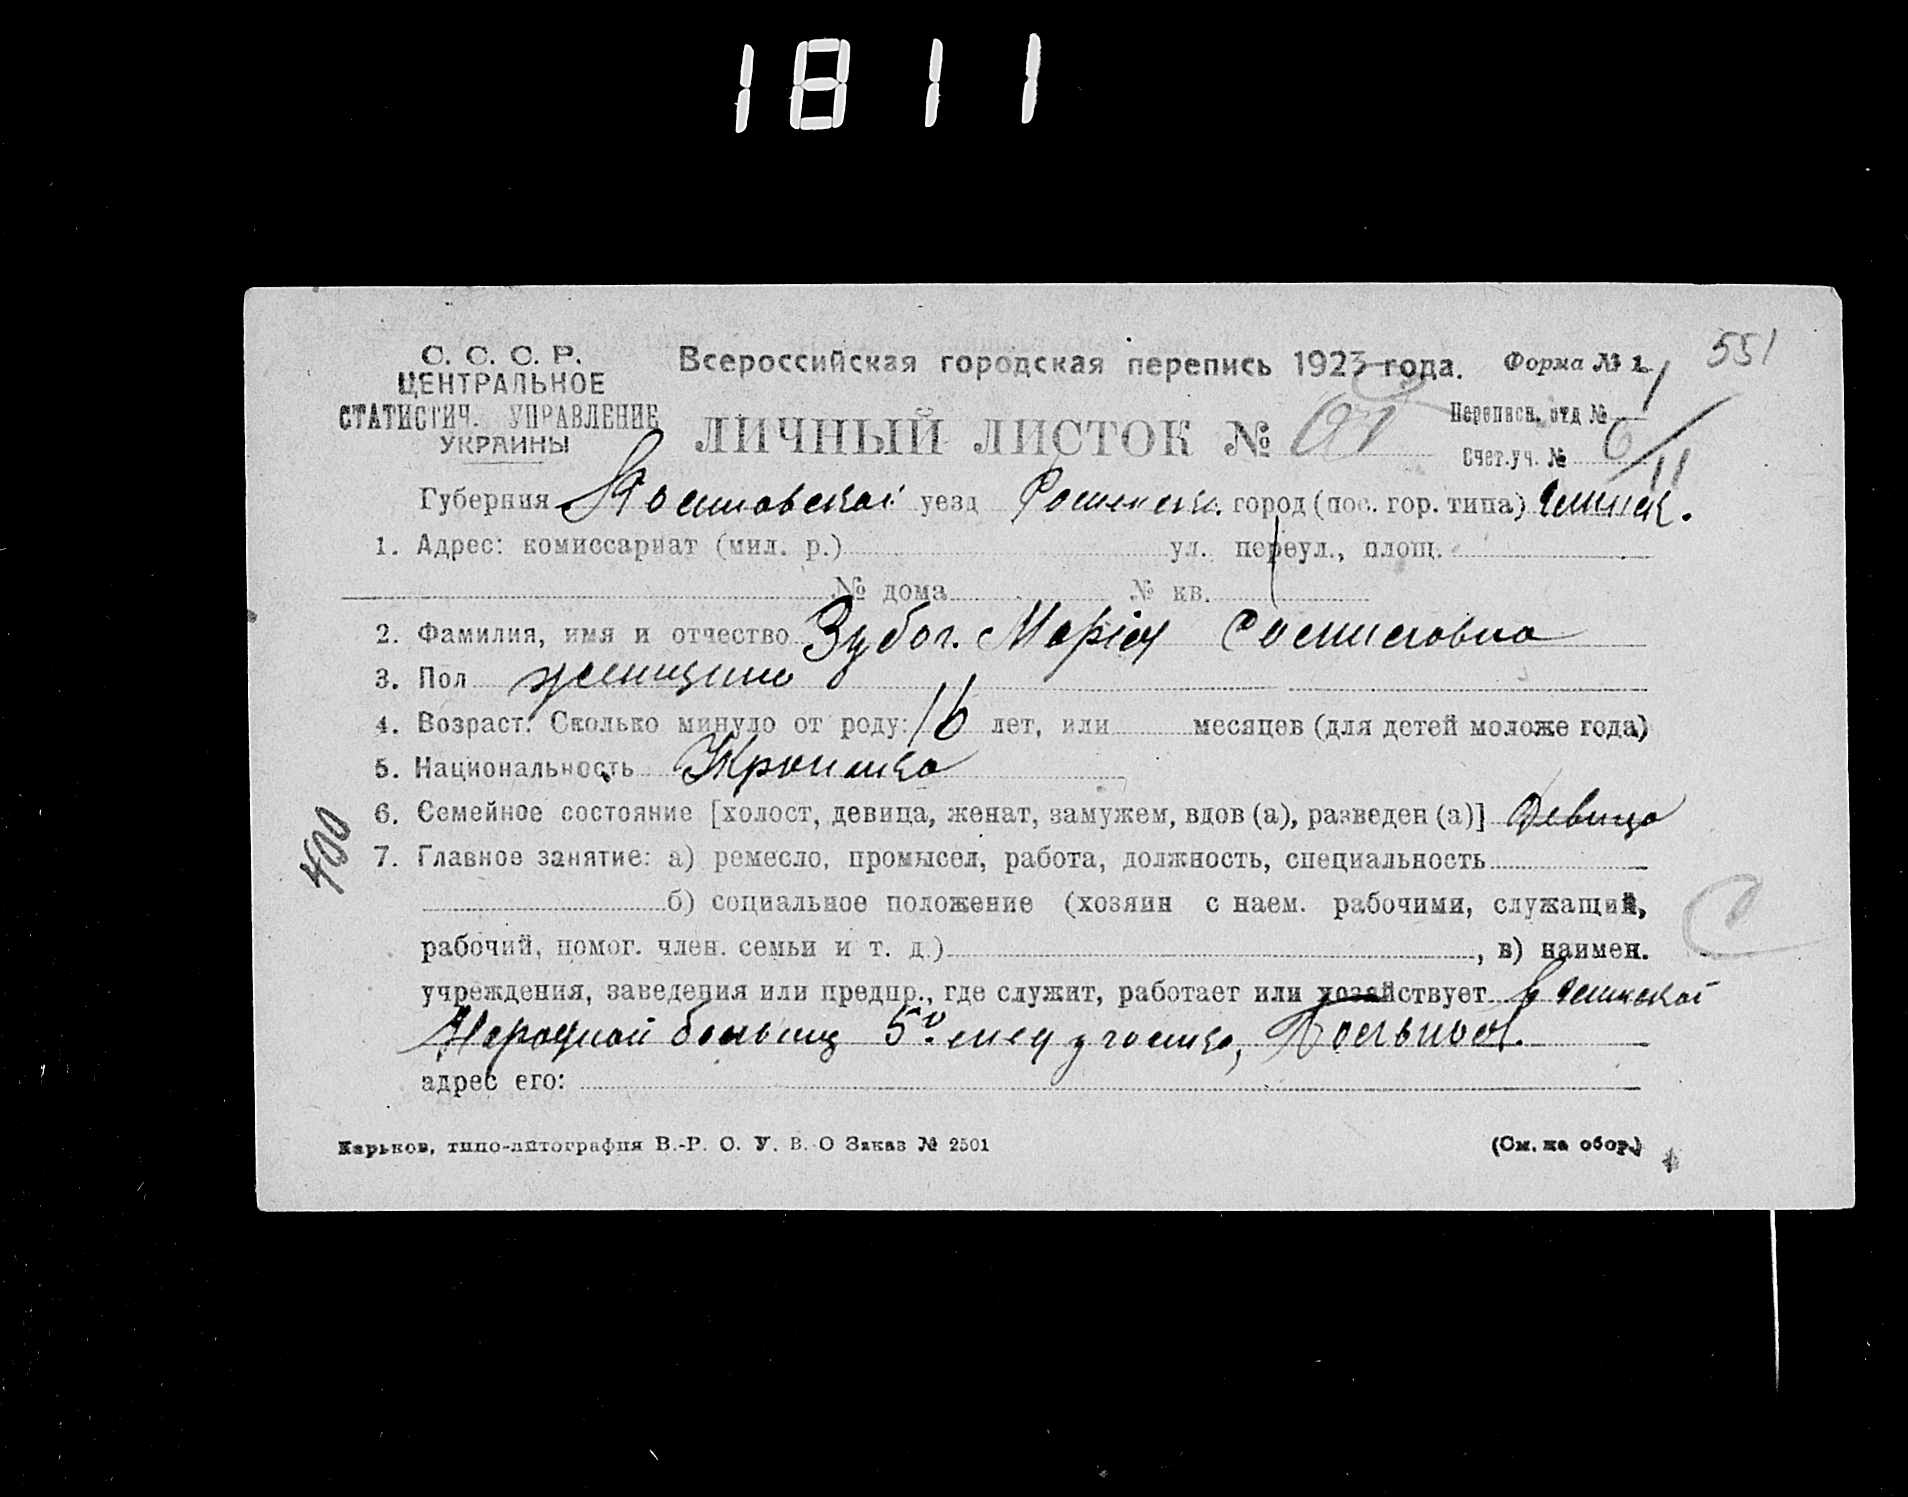 1811
551
С. С. С. Р.
ЦЕНТРАЛЬНОЕ
СТАТИСТИЧ. УПРАВЛЕНИЕ
УКРАИНЫ
Всероссийская городская перепись 1923 года. Форма № 1
ЛИЧНЫЙ ЛИСТОК №
Переписн. отд №
Счет. уч. № 11
Губерния уезд город (пос. гор. типа)
1. Адрес: комиссариат (мил. р.) ул. переул., площ.
№ дома № кв.
2. Фамилия, имя и отчество Марія
3. Пол женщина
4. Возраст. Сколько минуло от роду: 16 лет, или месяцев (для детей моложе года)
5. Национальность Украинка
6. Семейное состояние [холост, девица, женат, замужем, вдов (а), разведен (а)] Девица
400
7. Главное занятие: а) ремесло, промысел, работа, должность, специальность
б) социальное положение (хозяин с наем. рабочими, служащий,
С
рабочий, помог. член. семьи и т. д.) , в) наимен.
учреждения, заведения или предпр., где служит, работает или хозяйствует в
Народной больниц 5го мед участка, Больная.
адрес его:
Харьков, типо-литография В.-Р. О. У. В. О Заказ № 2501
(См. на обор.)